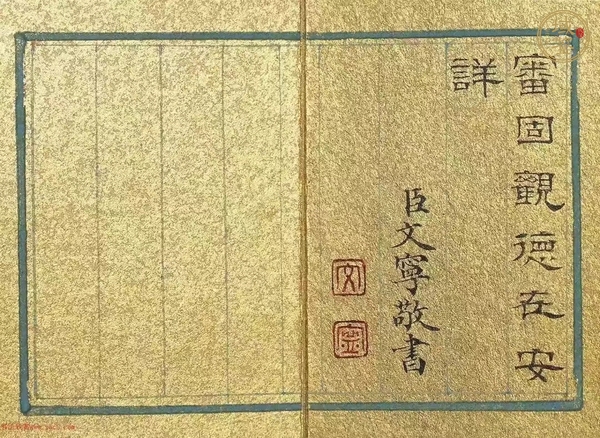 審固觀德在安
詳
臣文寧敬書
文
寧